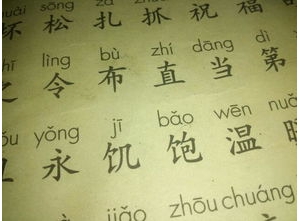 sōng zā
松 扎 抓 祝 福
lìng bù zhí dāng dì
令 布 直 当 第
yǒng jī bǎo wēn nuǎ
永 饥 饱 温 暖
jiǎo zhōu chuáng